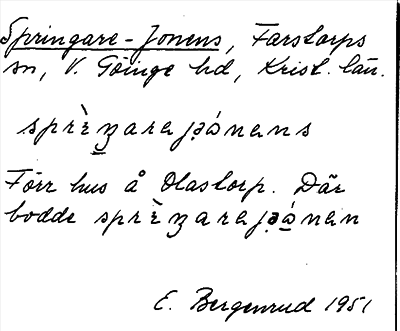 Springare-Jonens, Farstorps
sn, V. Göinge hd, Krist. län.
sprὲŋara jəónens
Förr hus å Olastorp. Där
bodde sprὲŋara jəónen
E. Bergenrud 1951